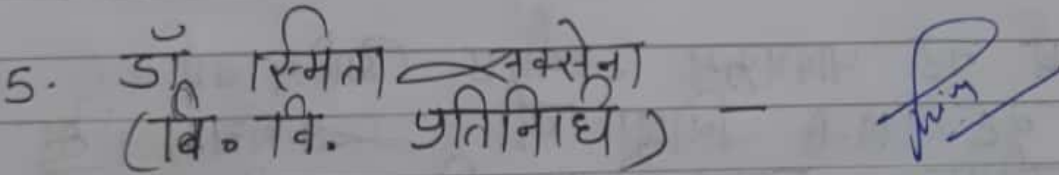 5. डॉ स्मिता सक्सेना
(वि. वि. प्रतिनिधि) -